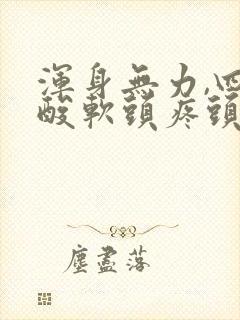 渾身無力,四
酸軟頭疼頭
塵盡落